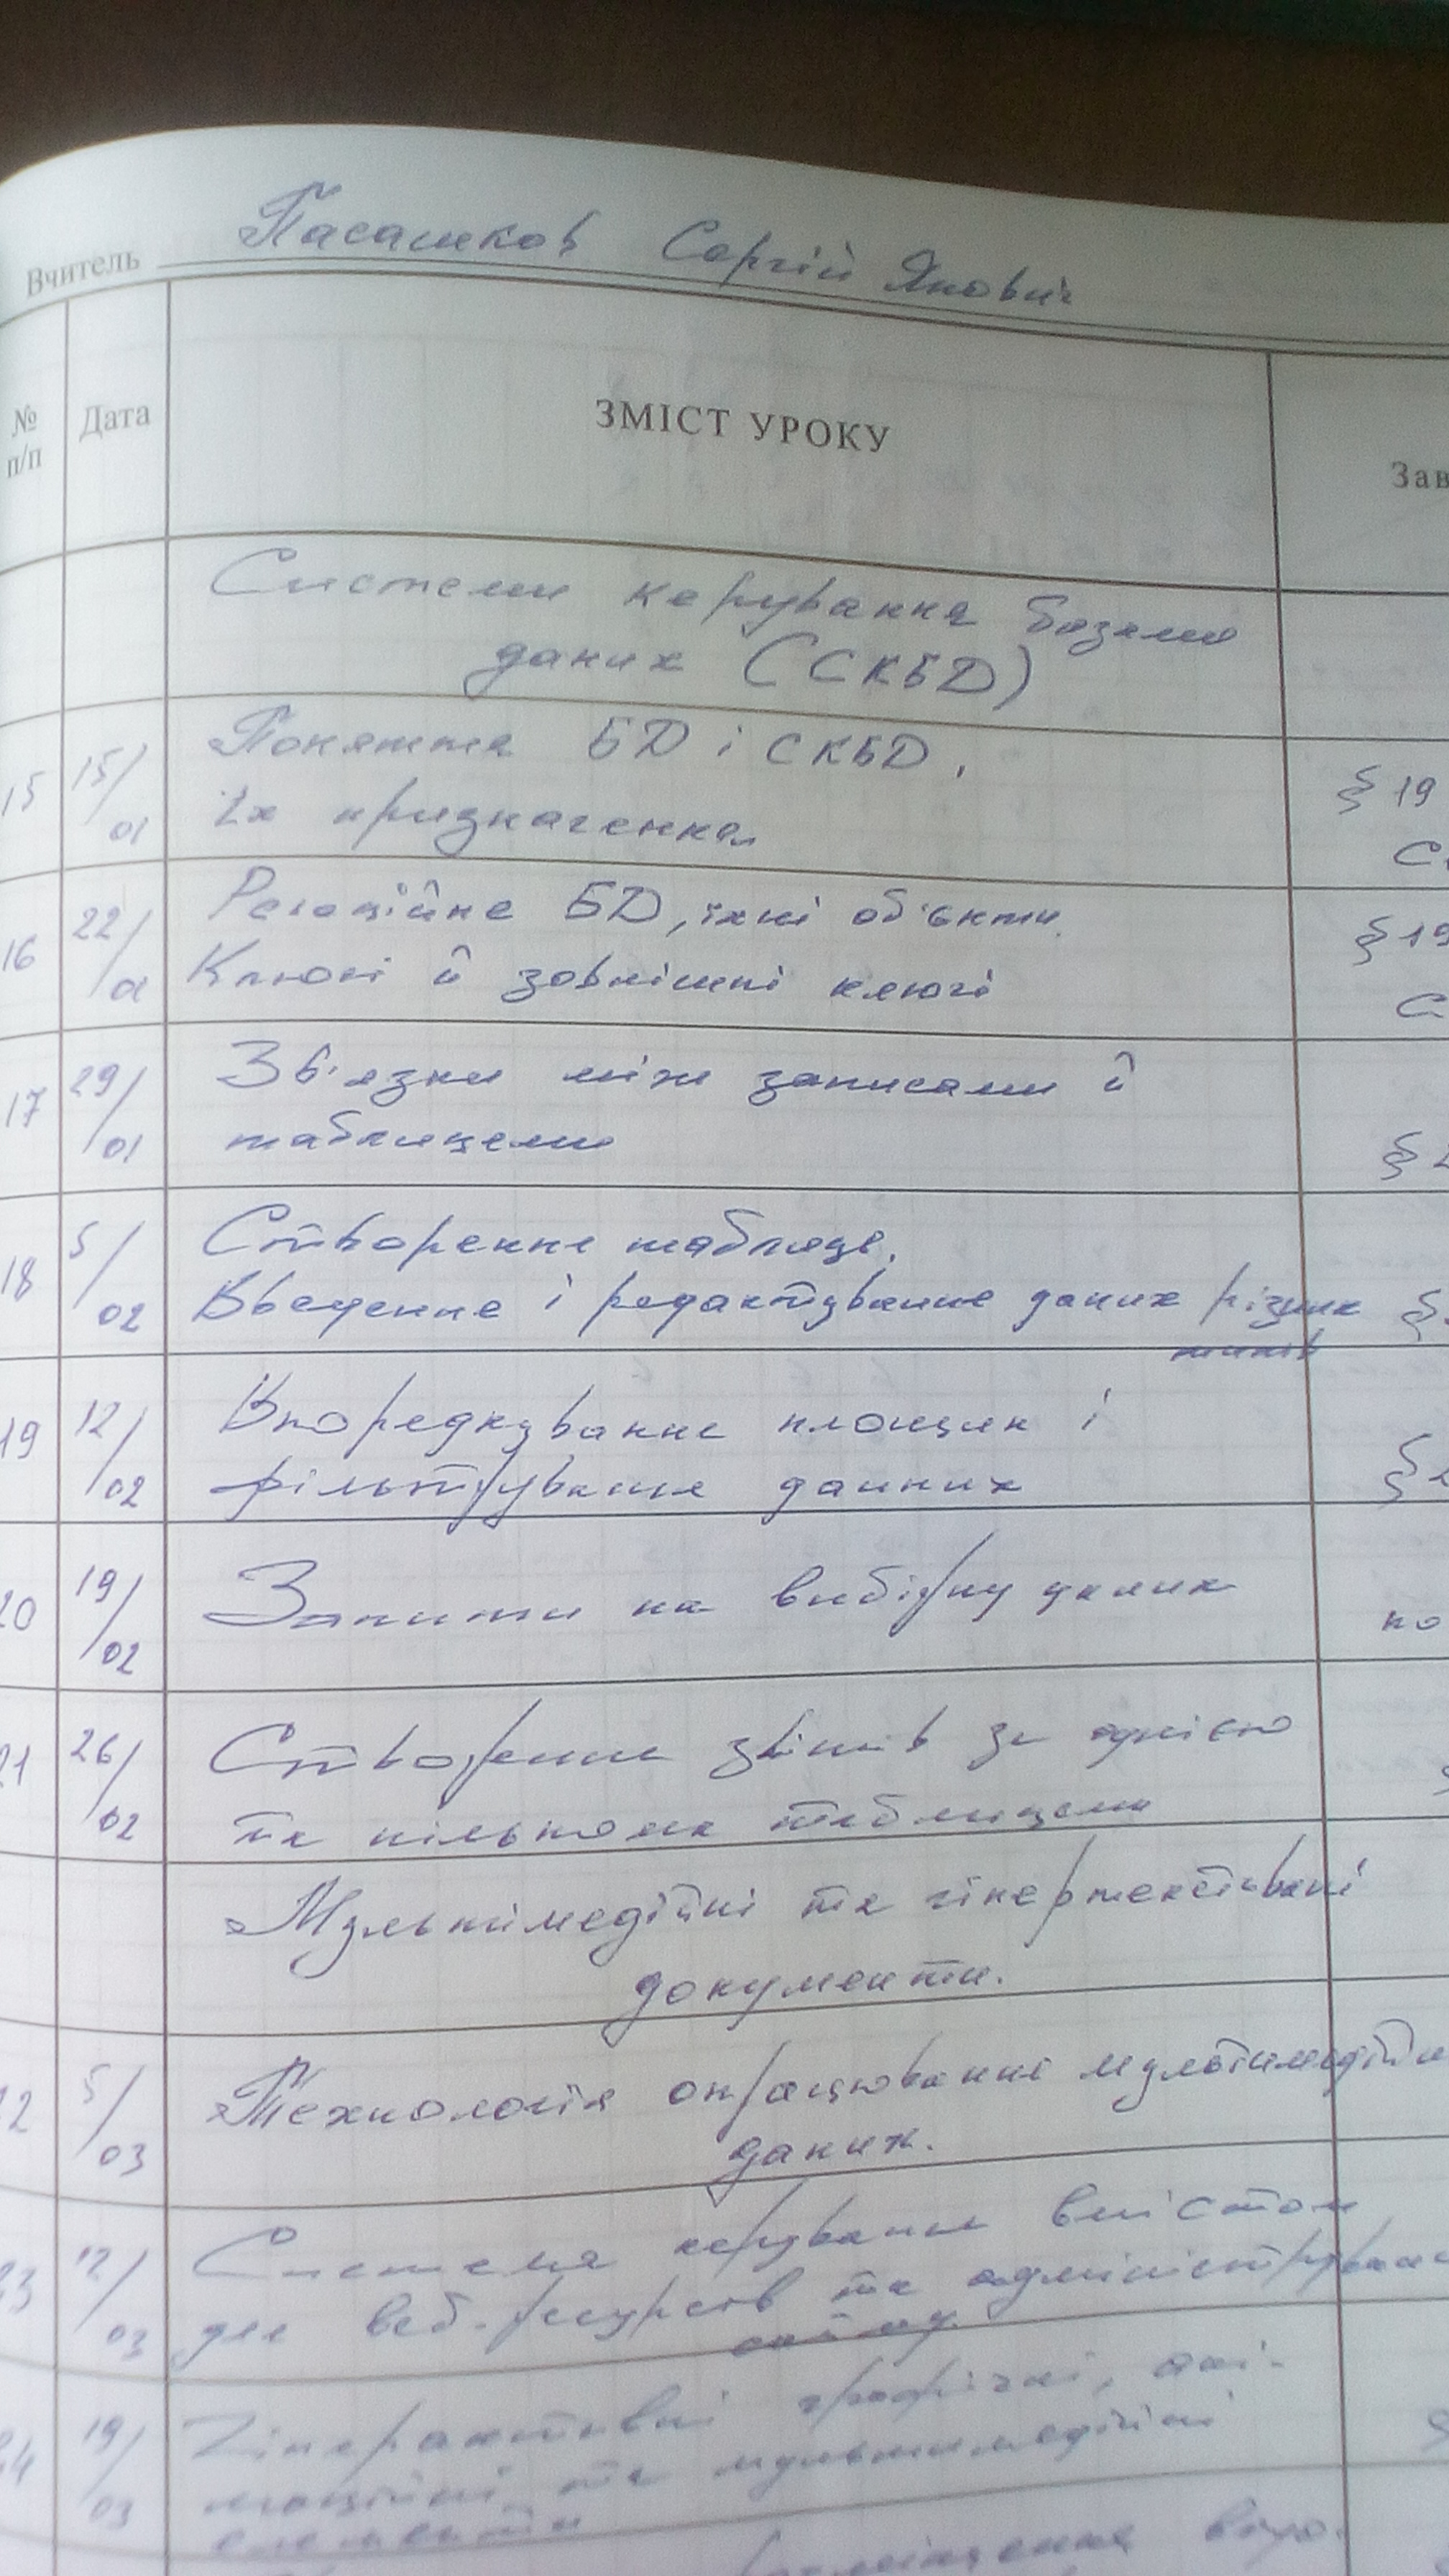 Вчитель Пасашков Сергій Якович
№ п/п Дата ЗМІСТ УРОКУ Зав
Системи керування базами
даних (СКБД)
15 15/01 Поняття БД і СКБД. § 19
Їх призначення
16 22/01 Реляційне БД, їхні об'єкти. § 19
Ключі й зовнішні ключі
17 29/01 Зв'язки між записами й
таблицями §
18 5/02 Створення таблиць.
Введення і редагування даних різних §
типів
19 12/02 Впорядкування і
фільтрування данних §
20 19/02 Запити на вибірку даних по
21 26/02 Створення звітів за однією
та кількома таблицями
Мультимедійні та гіпертекстові
документи.
22 5/03 Технологія опрацювання мультимедійн
даних.
23 12/03 Система керування вмістом
для веб-ресурсів та адмініструван
сайту.
24 19/03 графічні, ані-
маційні та мультимедійні
елементи